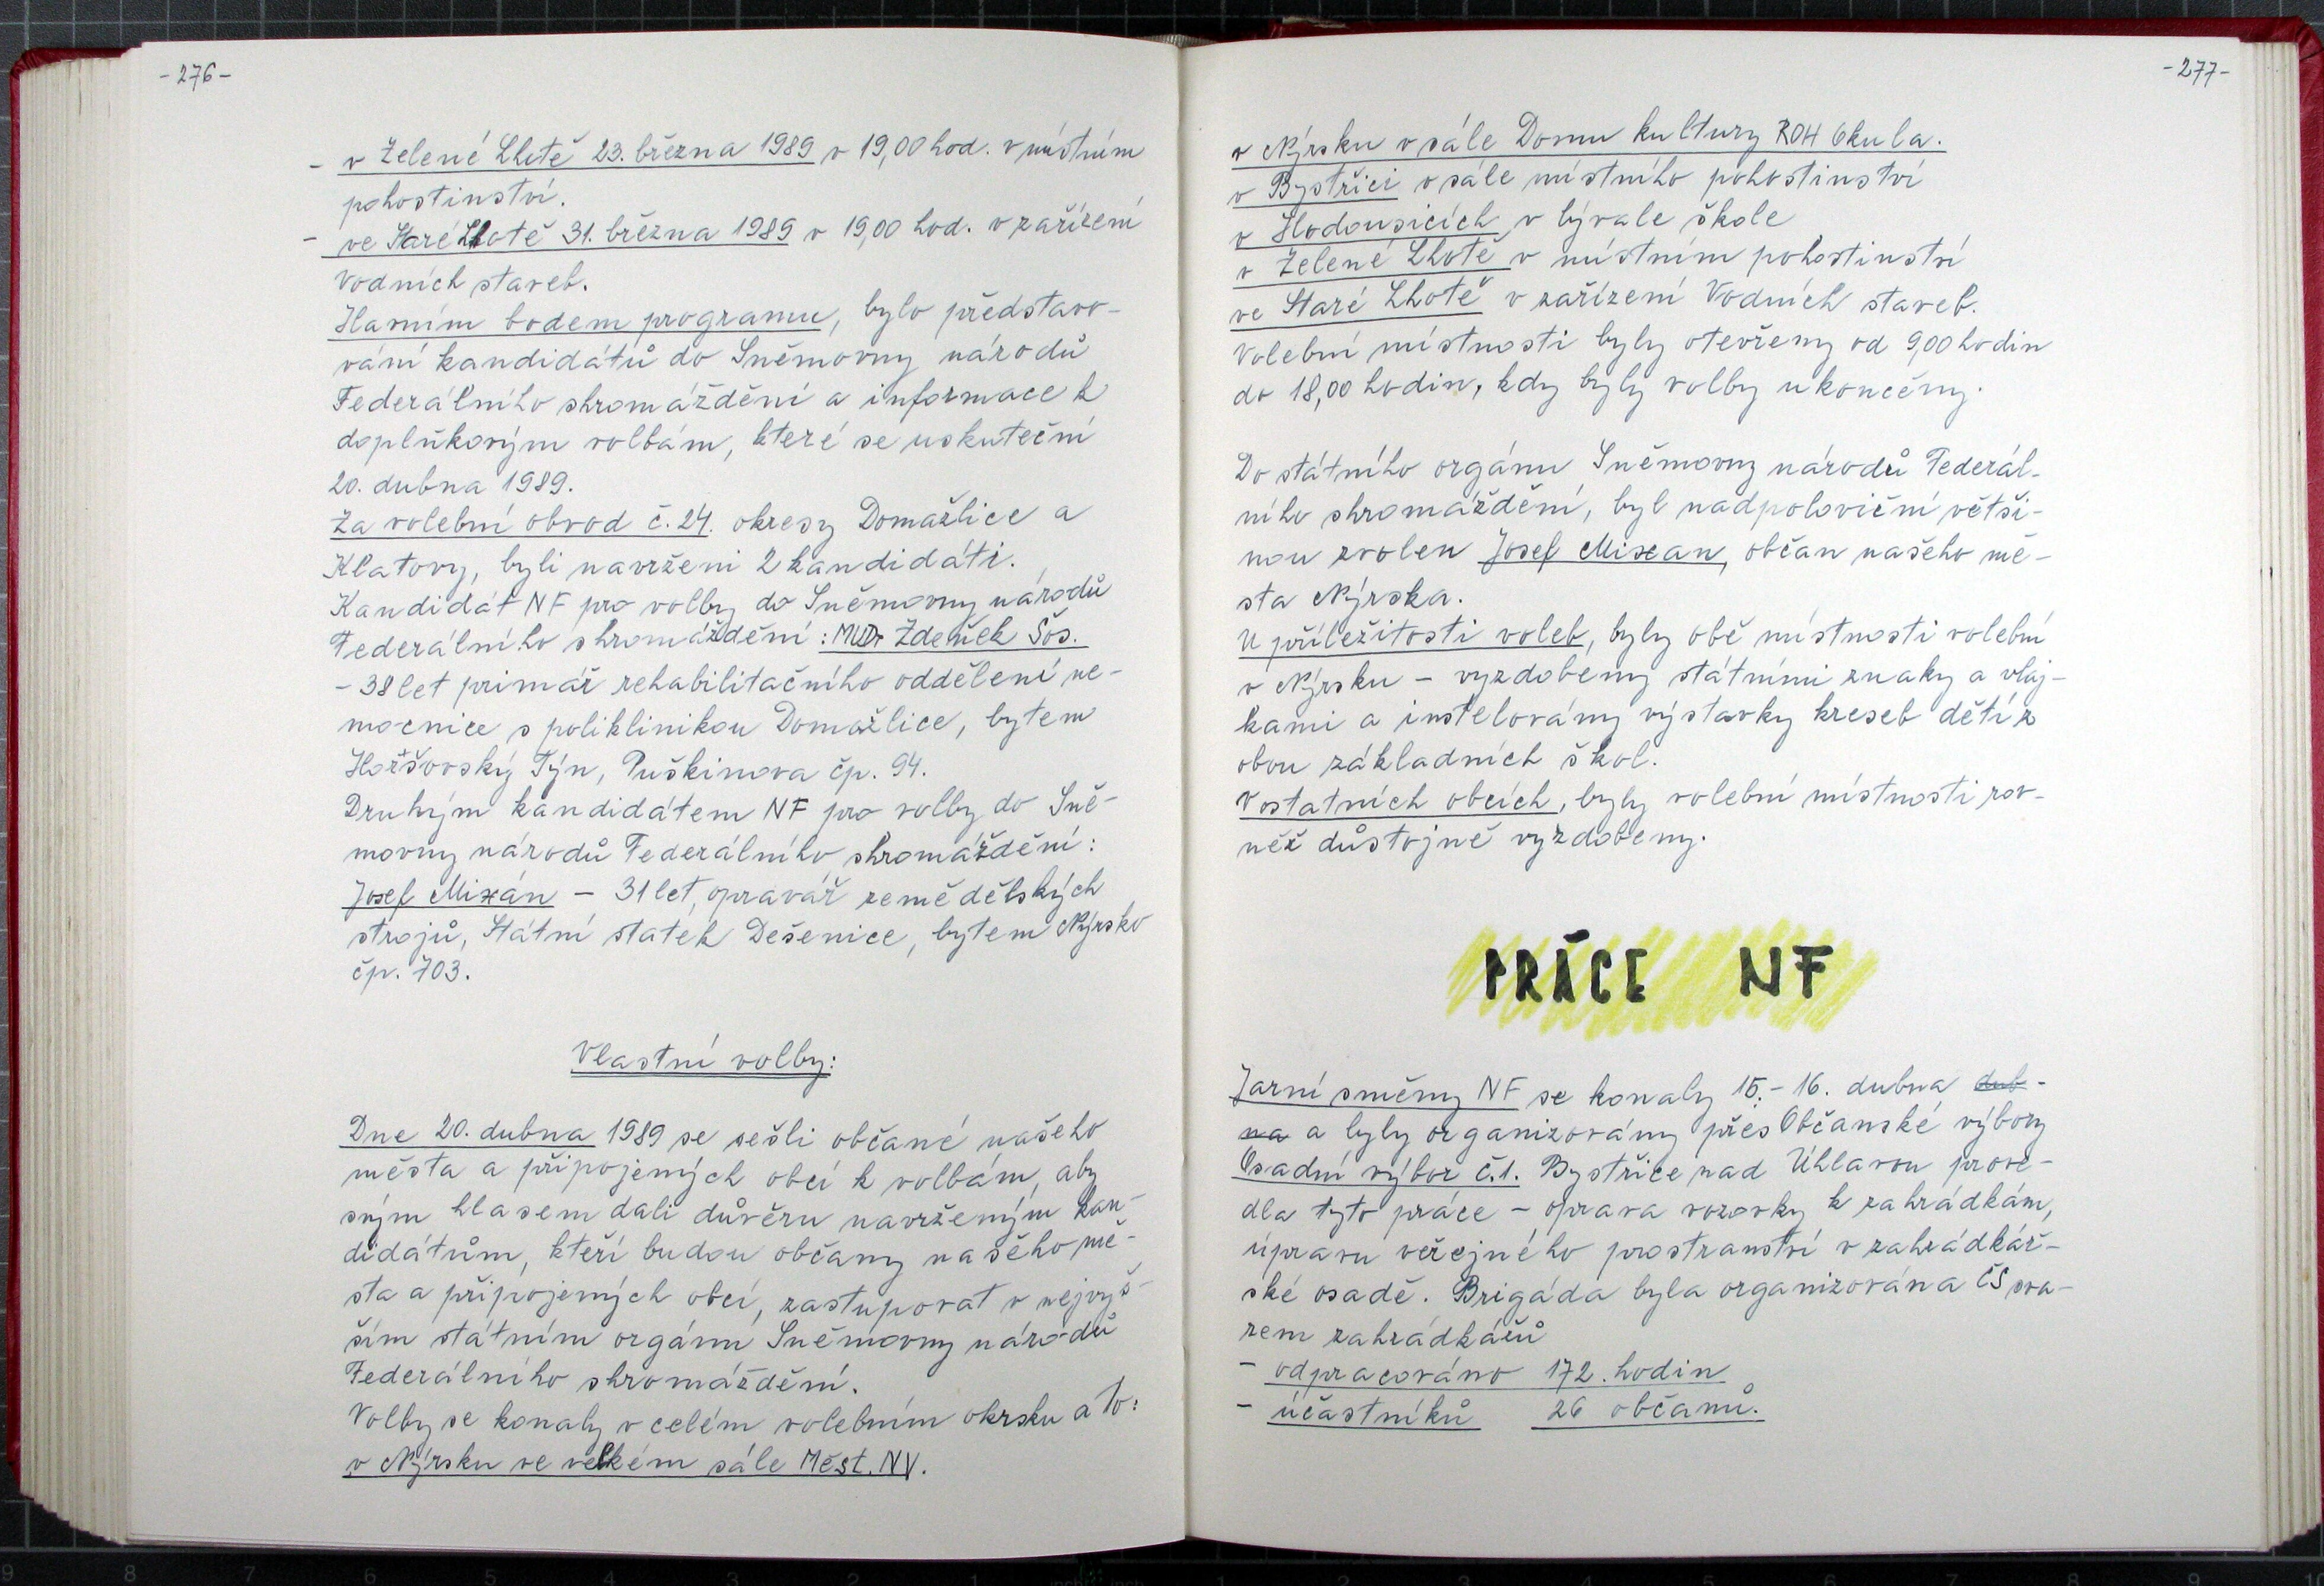 -276-
- v Zelené Lhotě 23. března 1989 v 19,00 hod. v místním
pohostinství.
- ve Staré Lhotě 31. března 1989 v 19,00 hod. v zařízení
Vodních staveb.
Hlavním bodem programu, bylo představo-
vání kandidátů do Sněmovny národů
Federálního shromáždění a informace k
doplňkovým volbám, které se uskuteční
20. dubna 1989.
Za volební obvod č. 24. okresy Domažlice a
Klatovy, byli navrženi 2 kandidáti.
Kandidát NF pro volby do Sněmovny národů
Federálního shromáždění: MUDr Zdeněk Šos.
- 38 let primář rehabilitačního oddělení ne-
mocnice s poliklinikou Domažlice, bytem
Horšovský Týn, Puškinova čp. 94.
Druhým kandidátem NF pro volby do Sně-
movny národů Federálního shromáždění:
Josef Mixán - 31 let, opravář zemědělských
strojů, Státní statek Dešenice, bytem Nýrsko
čp. 703.
Vlastní volby:
Dne 20. dubna 1989 se sešli občané našeho
města a připojených obcí k volbám, aby
svým hlasem dali důvěru navrženým kan-
didátům, kteří budou občany našeho mě-
sta a připojených obcí, zastupovat v nejvyš-
ším státním orgánu Sněmovny národů
Federálního shromáždění.
Volby se konaly v celém volebním okrsku a to:
v Nýrsku ve velkém sále Měst. NV.
-277-
v Nýrsku v sále Domu kultury ROH Okula.
v Bystřici v sále místního pohostinství
v Hodousicích v bývale škole
v Zelené Lhotě v místním pohostinství
ve Staré Lhotě v zařízení Vodních staveb.
Volební místnosti byly otevřeny od 9,00 hodin
do 18,00 hodin, kdy byly volby ukončeny.
Do státního orgánu Sněmovny národů Federál-
ního shromáždění, byl nadpoloviční větši-
nou zvolen Josef Mixan, občan našeho mě-
sta Nýrska.
U příležitosti voleb, byly obě místnosti volební
v Nýrsku - vyzdobeny státními znaky a vlaj-
kami a instelovány výstavky kreseb dětí z
obou základních škol.
V ostatních obcích, byly volební místnosti rov-
něž důstojně vyzdobeny.
PRÁCE NF
Jarní směny NF se konaly 15.- 16. dubna dub-
na a byly organizovány přes Občanské výbory
Osadní výbor č.1. Bystřice nad Úhlavou prove-
dla tyto práce - oprava vozovky k zahrádkám,
úpravu veřejného prostranství v zahrádkář-
ské osadě. Brigáda byla organizována ČS sva-
zem zahrádkářů
- odpracováno 172. hodin
- účastníků 26 občanů.